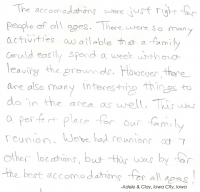 The accomodations were just right for
people of all ages. There were so many
activities available that a family
could easily spend a week without
leaving the grounds. However there
are also many interesting things to
do in the area as well. This was
a perfect place for our family
reunion. We've had reunions at 7
other locations, but this was by far
the best accomodations for all ages!
-Adele & Clay, Iowa City, Iowa